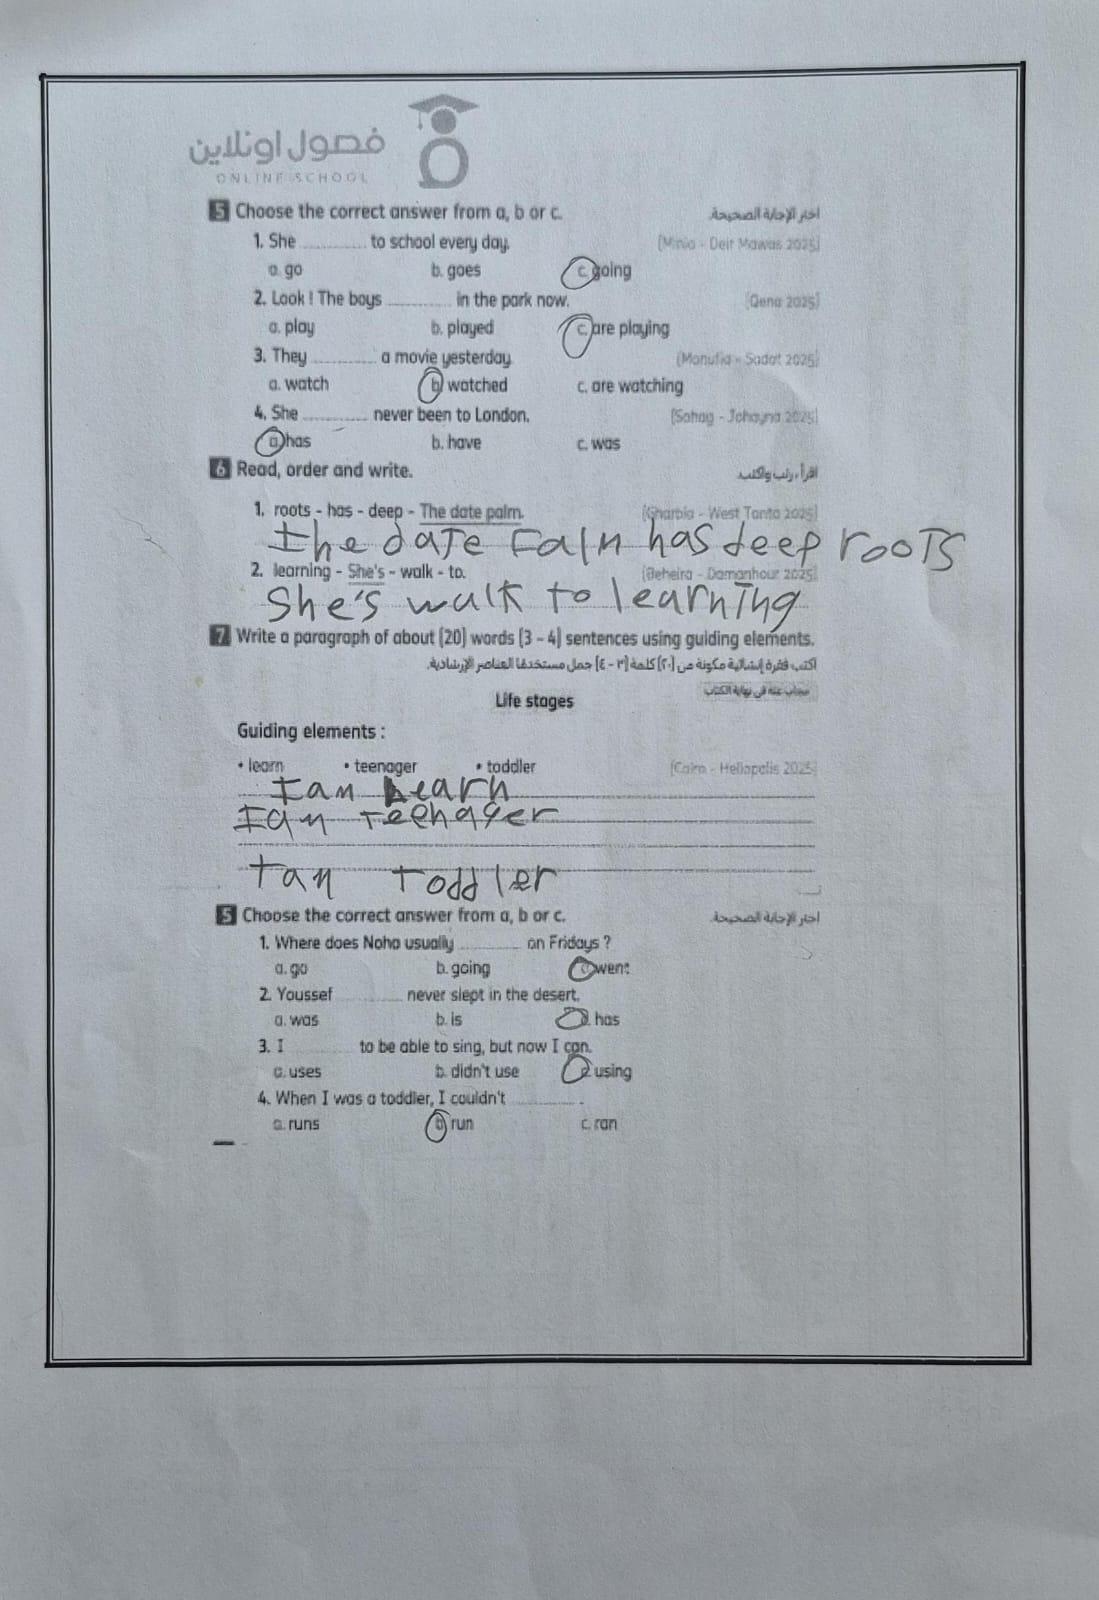 فصول اونلاين
ONLINE SCHOOL
5 Choose the correct answer from a, b or c. اختر الإجابة الصحيحة.
1. She ............ to school every day. (Minia - Deir Mawas 2025)
a. go b. goes c. going
2. Look ! The boys ............ in the park now. (Qena 2025)
a. play b. played c. are playing
3. They ............ a movie yesterday. (Monufia - Sadat 2025)
a. watch b. watched c. are watching
4. She ............ never been to London. (Sohag - Johayna 2025)
a. has b. have c. was
6 Read, order and write. اقرأ، رتب واكتب.
1. roots - has - deep - The date palm. (Gharbia - West Tanta 2025)
the date Faln has deep roots
2. learning - She's - walk - to. (Beheira - Damanhour 2025)
She's walk to learning
7 Write a paragraph of about (20) words (3 - 4) sentences using guiding elements.
اكتب فقرة إنشائية مكونة من (٢٠) كلمة (٣ - ٤) جمل مستخدمًا العناصر الإرشادية.
مجاب عنه في نهاية الكتاب
Life stages
Guiding elements :
• learn • teenager • toddler (Cairo - Heliopolis 2025)
I am Learn
I am teenager
I am toddler
5 Choose the correct answer from a, b or c. اختر الإجابة الصحيحة.
1. Where does Noha usually ............ on Fridays ?
a. go b. going c. went
2. Youssef ............ never slept in the desert.
a. was b. is c. has
3. I ............ to be able to sing, but now I can.
a. uses b. didn't use c. using
4. When I was a toddler, I couldn't ............ .
a. runs b. run c. ran